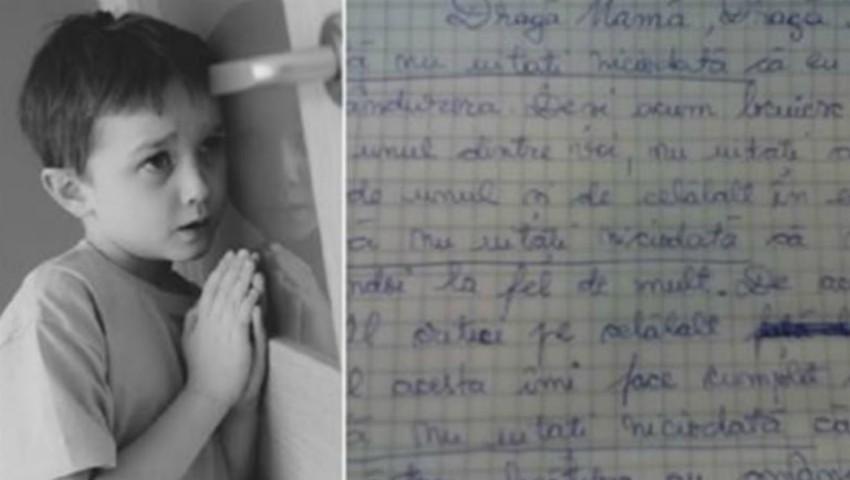 Dragă Mamă, Dragă
să nu uitați niciodată că eu
amândurora. Deși acum locuiesc
unul dintre voi, nu uitați
de unul și de celălalt în
să nu uitați niciodată că
la fel de mult. De
critici pe celălalt
acesta îmi face cumplit
nu uitați niciodată că